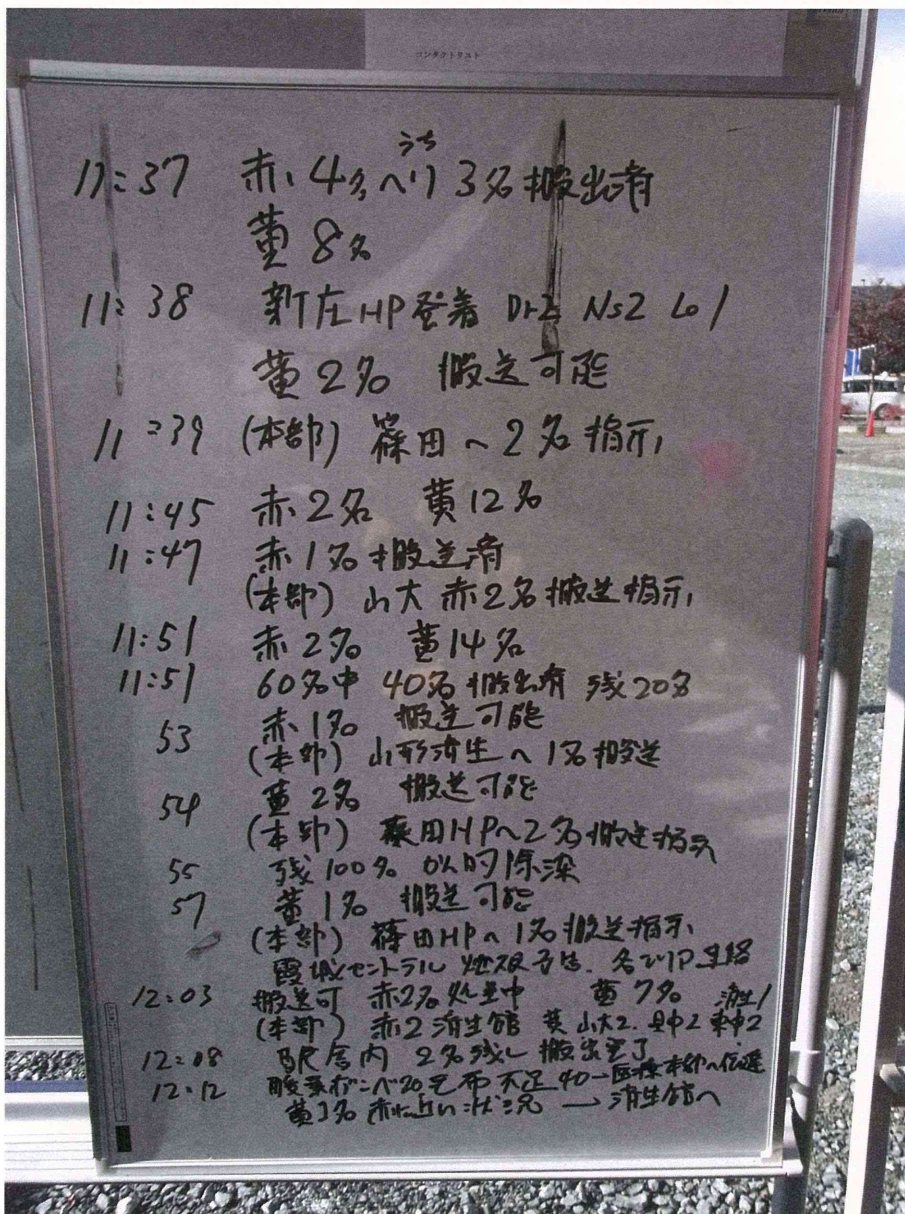 コンタクトリスト
11:37 赤4名 うち ヘリ3名搬出済
黄8名
11:38 新庄HP登着 Dr2 Ns2 Lo1
黄2名 搬送可能
11:39 (本部) 篠田へ2名指示
11:45 赤2名 黄12名
11:47 赤1名搬送済
(本部) 山大 赤2名搬送指示
11:51 赤2名 黄14名
11:51 60名中 40名搬出済 残20名
53 赤1名 搬送可能
(本部) 山形済生へ1名搬送
54 黄2名 搬送可能
(本部) 篠田HPへ2名搬送指示
55 残100名 以的除染
57 黄1名 搬送可能
(本部) 篠田HPへ1名搬送指示
霞城セントラル
12:03 搬送可 赤2名処置中 黄7名 済生1
(本部) 赤2済生館 黄山大2. 県中2 東中2
12:08 駅舎内 2名残し 搬出完了
12:12 酸素ボンベ20毛布不足40→医療本部へ伝達
黄3名 赤に近い状況 → 済生館へ